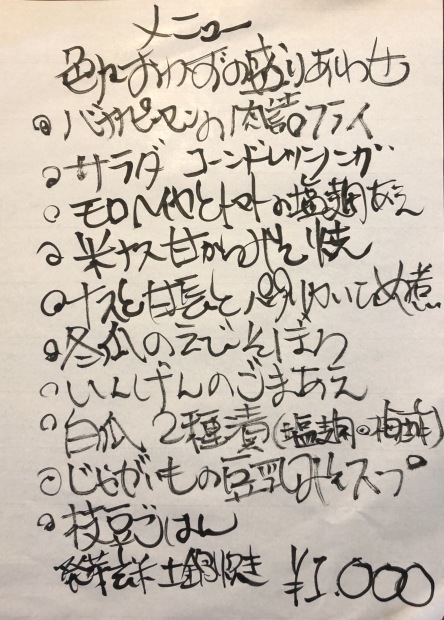 メニュー
色々おかずの盛りあわせ
バナナピーマンの肉詰フライ
サラダ コーンドレッシング
モロヘイヤとトマトの塩麹あえ
米ナス甘からみそ焼
ナスと甘長とパプリカいため煮
冬瓜のえびそぼろ
いんげんのごまあえ
白瓜 2種漬(塩麹の梅酢)
じゃがいもの豆乳みそスープ
枝豆ごはん
発芽玄米土鍋炊き ¥1.000